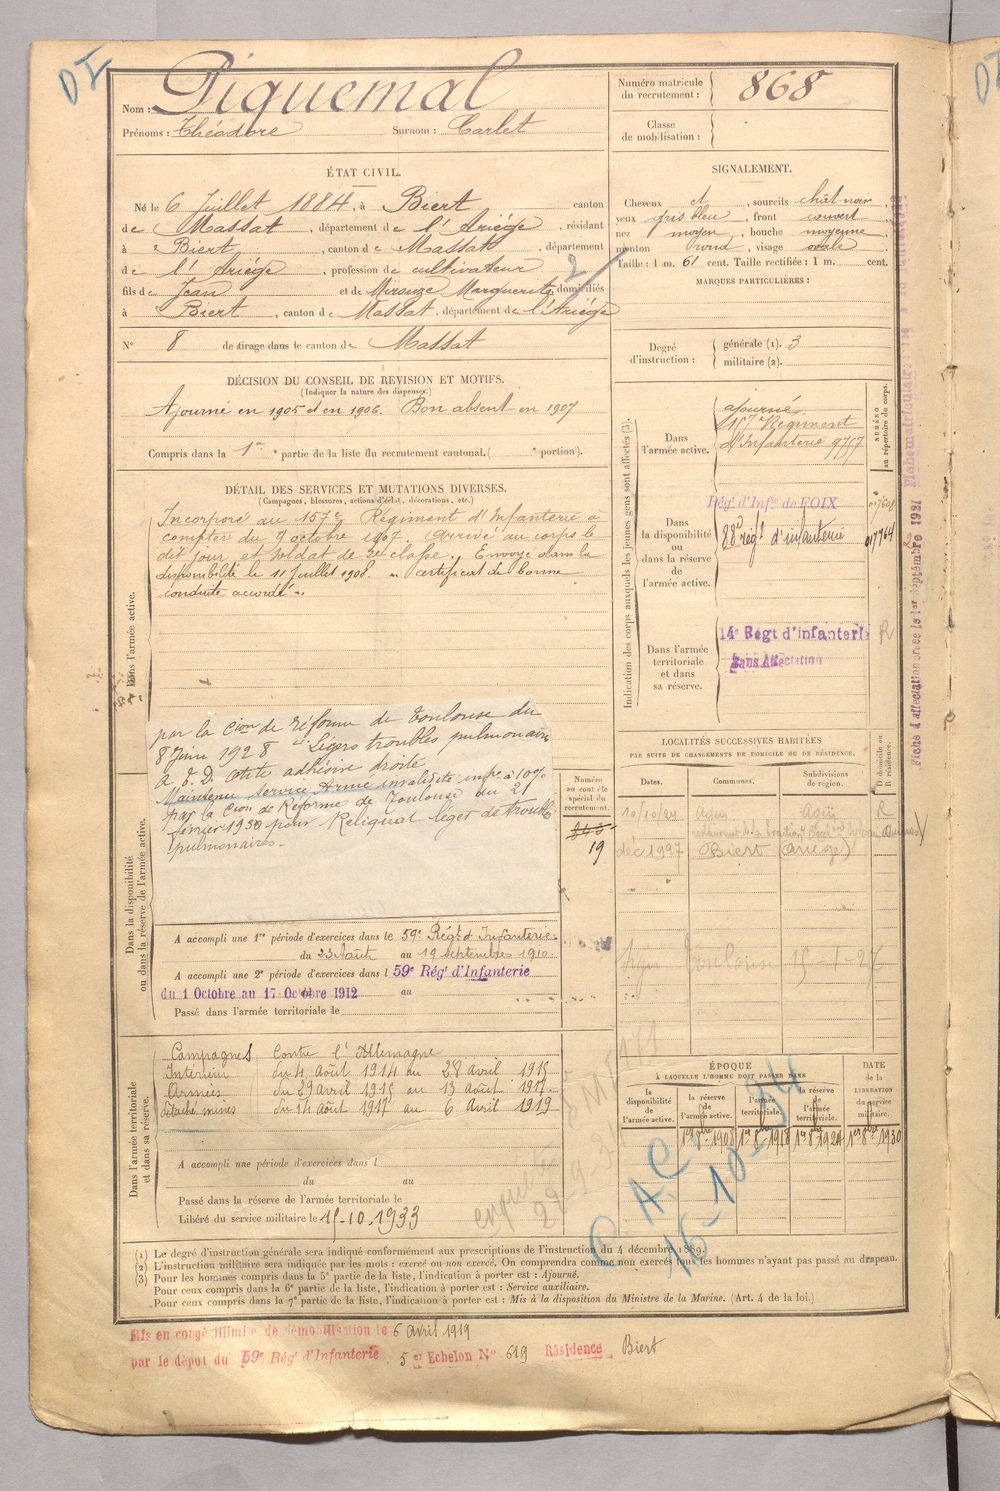 D I
Nom : Piquemal
Prénoms : Théodore Surnom : Carlet
Numéro matricule du recrutement : 868
Classe de mobilisation :
ÉTAT CIVIL.
Né le 6 Juillet 1884, à Biert canton
de Massat, département de l'Ariège, résidant
à Biert, canton de Massat, département
de l'Ariège, profession de cultivateur
fils de Jean et de Mirouze Marguerite domiciliés
à Biert, canton de Massat, département de l'Ariège
N° 8 de tirage dans le canton de Massat
SIGNALEMENT.
Cheveux et, sourcils chât noir
yeux gris bleu, front couvert
nez moyen, bouche moyenne
menton rond, visage ovale
Taille : 1 m. 61 cent. Taille rectifiée : 1 m. cent.
MARQUES PARTICULIÈRES :
Degré d'instruction : générale (1). 3
militaire (2).
DÉCISION DU CONSEIL DE REVISION ET MOTIFS.
(Indiquer la nature des dispenses.)
Ajourné en 1905 et en 1906. Bon absent en 1907
Compris dans la 1re partie de la liste du recrutement cantonal. ( e portion).
DÉTAIL DES SERVICES ET MUTATIONS DIVERSES.
(Campagnes, blessures, actions d'éclat, décorations, etc.)
Dans l'armée active.
Incorporé au 157e Régiment d'Infanterie à
compter du 7 octobre 1907. Arrivé au corps le
dit jour, et soldat de 2e classe. Envoyé dans la
disponibilité le 11 Juillet 1908. certificat de bonne
conduite accordé.
par la Cion de réforme de Toulouse du
8 Juin 1928 Légers troubles pulmonaires
à S. D. adhésive droite
Maintenu Service Armé invalidité infre à 10%
par la Cion de Réforme de Toulouse du 21
février 1930 pour Reliquat léger de troubles
pulmonaires.
Dans la disponibilité ou dans la réserve de l'armée active.
A accompli une 1re période d'exercices dans le 59e Régt d'Infanterie
du 23 Août au 19 septembre 1910.
A accompli une 2e période d'exercices dans l 59e Régt d'Infanterie
du 1 Octobre au 17 Octobre 1912 au
Passé dans l'armée territoriale le
Numéro au contrôle spécial du recrutement.
19
Indication des corps auxquels les jeunes gens sont affectés (3).
NUMÉRO au répertoire du corps.
Dans l'armée active.
ajourné
157e Régiment
d'Infanterie 9757
Dans la disponibilité ou dans la réserve de l'armée active.
Régt d'Infie de FOIX
88e régt d'infanterie 017764
Dans l'armée territoriale et dans sa réserve.
14e Régt d'Infanterie R
Sans Affectation
Fiche d'affectation créée le 1er Septembre 1927
LOCALITÉS SUCCESSIVES HABITÉES
PAR SUITE DE CHANGEMENTS DE DOMICILE OU DE RÉSIDENCE.
Dates. Communes. Subdivisions de région. D domicile ou R résidence.
R
Biert (Ariège)
Toulouse
Dans l'armée territoriale et dans sa réserve.
Campagnes Contre l'Allemagne
Intérieur du 4 Août 1914 au 28 avril 1915
Armées du 29 avril 1915 au 13 Août 1917
détaché mines du 14 Août 1917 au 6 Avril 1919
A accompli une période d'exercices dans l
du au
Passé dans la réserve de l'armée territoriale le
Libéré du service militaire le 15-10-1933
enquête
ÉPOQUE
À LAQUELLE L'HOMME DOIT PASSER DANS
la disponibilité de l'armée active.
la réserve de l'armée active.
l'armée territoriale.
la réserve de l'armée territoriale.
DATE de la LIBÉRATION du service militaire.
1er 8bre 1908 1er 8bre 1918 1er 8bre 1924 1er 8bre 1930
16-10-34
(1) Le degré d'instruction générale sera indiqué conformément aux prescriptions de l'instruction du 4 décembre 1889.
(2) L'instruction militaire sera indiquée par les mots : exercé ou non exercé. On comprendra comme non exercés tous les hommes n'ayant pas passé au drapeau.
(3) Pour les hommes compris dans la 5e partie de la liste, l'indication à porter est : Ajourné.
Pour ceux compris dans la 6e partie de la liste, l'indication à porter est : Service auxiliaire.
Pour ceux compris dans la 7e partie de la liste, l'indication à porter est : Mis à la disposition du Ministre de la Marine. (Art. 4 de la loi.)
Mis en congé illimité de démobilisation le 6 avril 1919
par le dépôt du 59e Régt d'Infanterie 5 Echelon N° 619 Résidence Biert